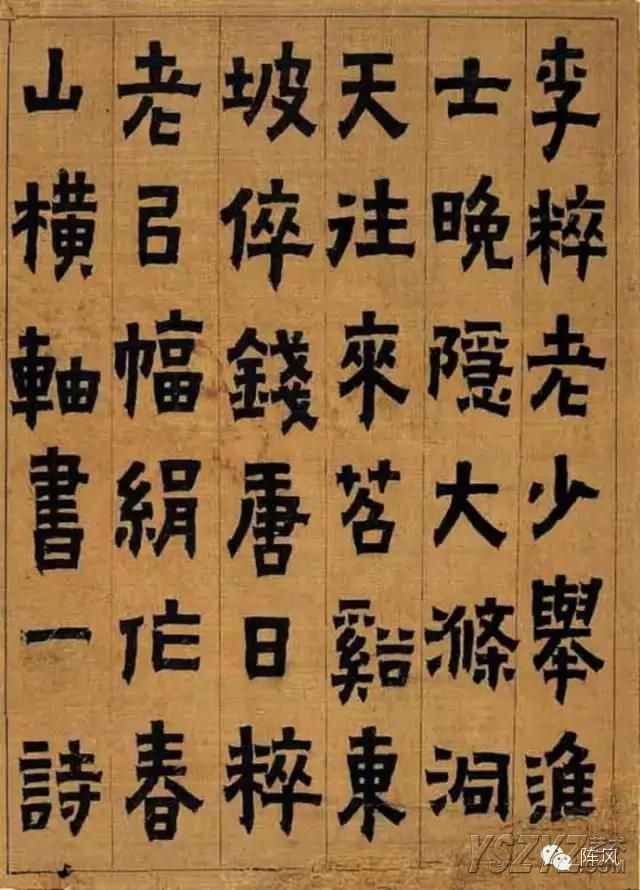 李粹老少舉進
士晚隱大滌洞
天往來苕谿東
坡倅錢唐日粹
老㠯幅絹作春
山橫軸書一詩
YSZYZ艺术
.COM
阵风